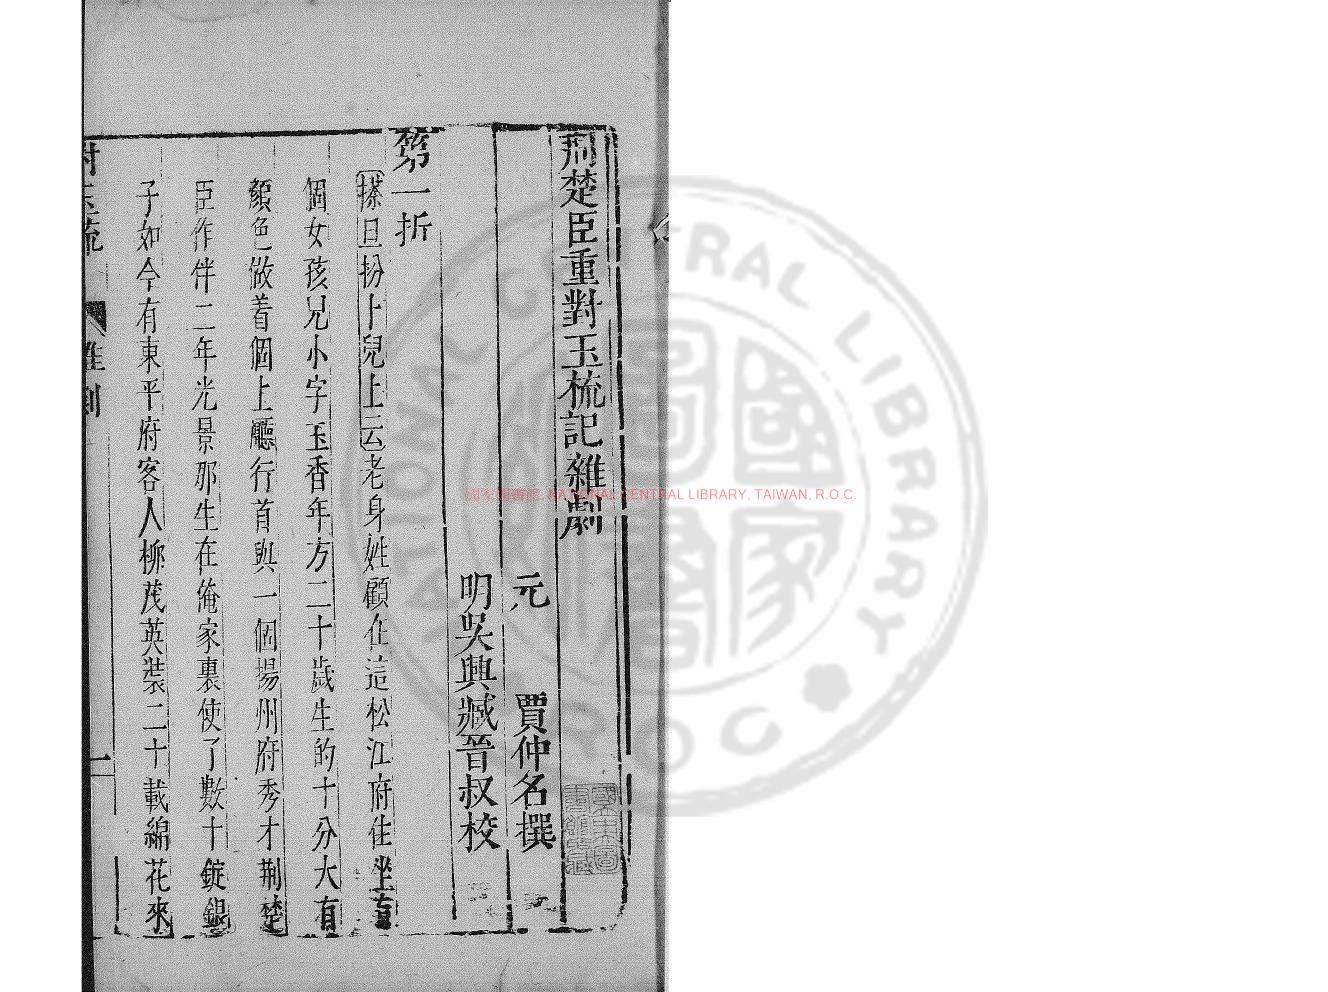 荆楚臣重對玉梳記雜劇
元 賈仲名撰
明吳興臧晉叔校
第一折
搽旦扮卜兒上云老身姓顧在這松江府住坐有
個女孩兒小字玉香年方二十歲生的十分大有
顏色做着個上廳行首與一個揚州府秀才荆楚
臣作伴二年光景那生在俺家裏使了數十錠銀
子如今有東平府客人柳茂英裝二十載綿花來
對玉梳
雜劇
一
國家圖書館, NATIONAL CENTRAL LIBRARY, TAIWAN, R.O.C.
NATIONAL CENTRAL LIBRARY
R.O.C